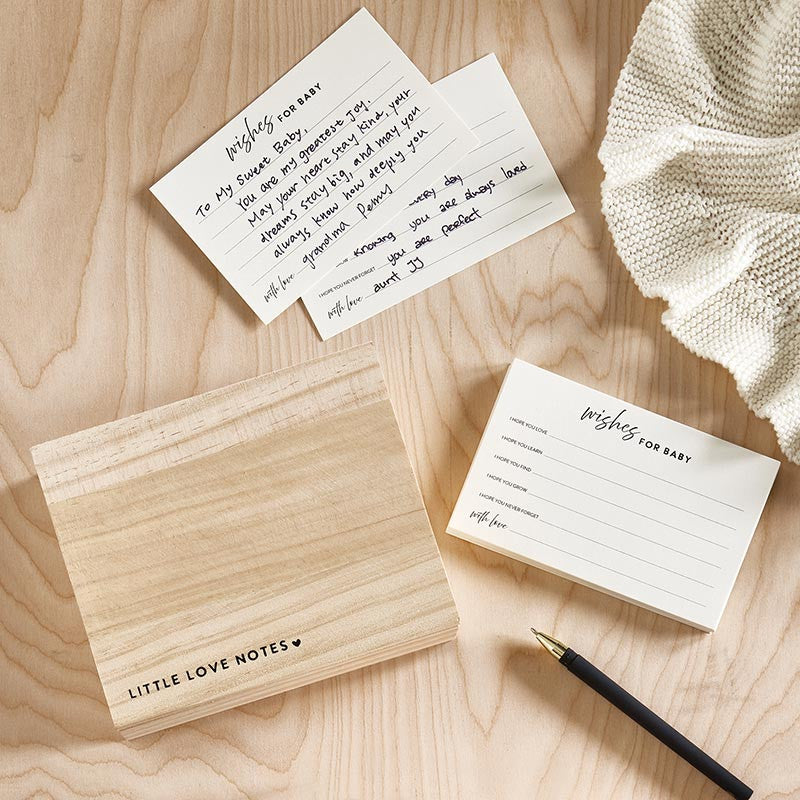 wishes FOR BABY
To My Sweet Baby,
You are my greatest joy.
May your heart stay kind, your
dreams stay big, and may you
always know how deeply you
with love grandma Penny
very day
Knowing you are always loved
I HOPE YOU NEVER FORGET you are perfect
with love aunt JJ
wishes FOR BABY
I HOPE YOU LOVE
I HOPE YOU LEARN
I HOPE YOU FIND
I HOPE YOU GROW
I HOPE YOU NEVER FORGET
with love
LITTLE LOVE NOTES♥